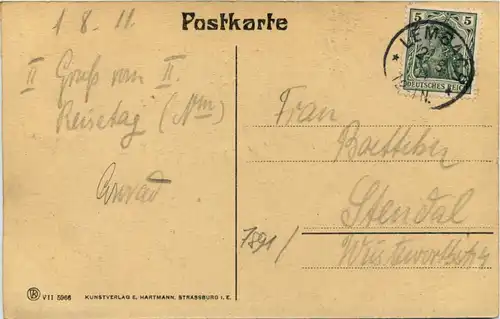 Postkarte
1. 8. 11.
II Gruß vom II.
Reisetag (Nm)
Frau
Boetticher
Stendal
7891/
5 5
DEUTSCHES REICH
VII 5966 KUNSTVERLAG E. HARTMANN, STRASSBURG i. E.